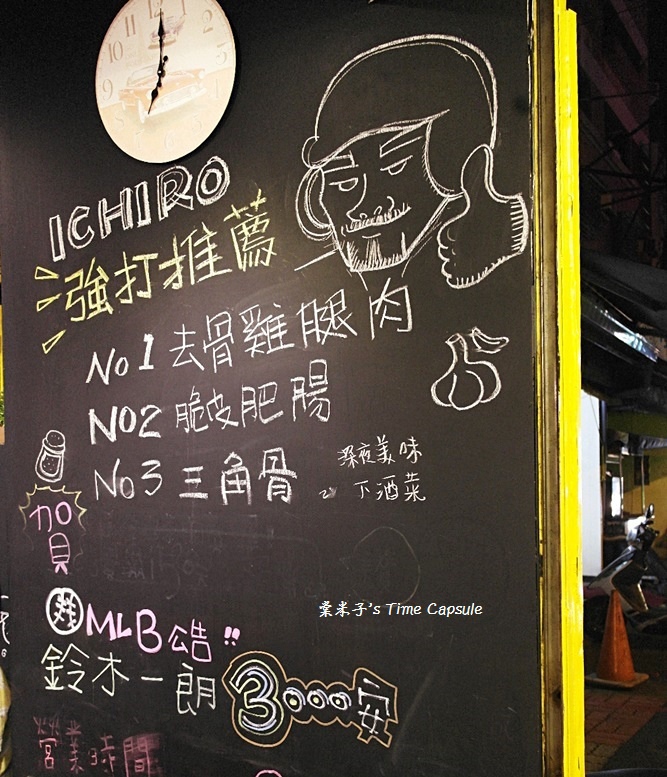 ICHIRO
強打推薦
No 1 去骨雞腿肉
NO2 脆皮肥腸
No 3 三角骨
深夜美味
下酒菜
賀
MLB 公告!!
鈴木一朗 3000安
營業時間
棠米子's Time Capsule